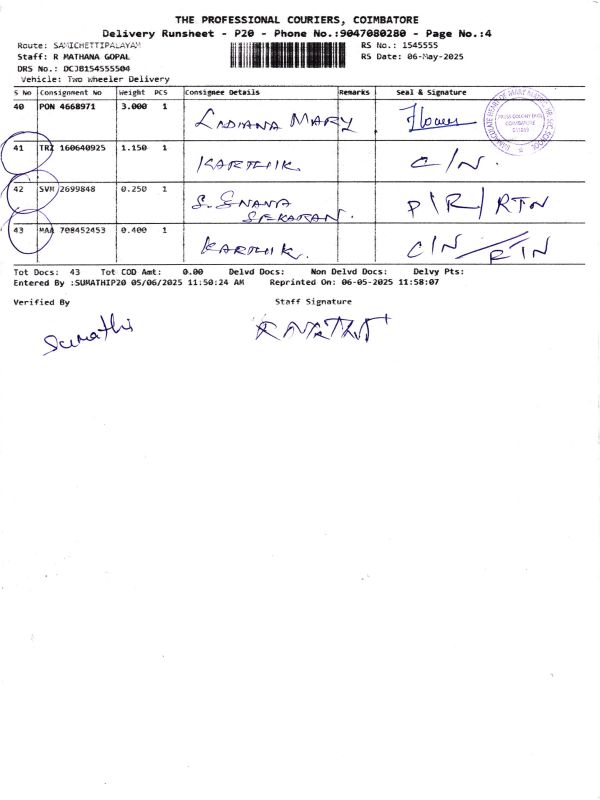 THE PROFESSIONAL COURIERS, COIMBATORE
Delivery Runsheet - P20 - Phone No.:9047080280 - Page No.:4
Route: SAMICHETTIPALAYAM
RS No.: 1545555
Staff: R MATHANA GOPAL
RS Date: 06-May-2025
DRS No.: DCJB154555504
Vehicle: Two Wheeler Delivery
S No Consignment No Weight PCS Consignee Details Remarks Seal & Signature
40 PON 4668971 3.000 1 MARY
41 TRZ 160640925 1.150 1 KARTHIK C/N.
42 SVM 2699848 0.250 1 S. P/R/RTN
SEKARAN.
43 MAA 708452453 0.400 1 KARTHIK. C/N/RTN
Tot Docs: 43 Tot COD Amt: 0.00 Delvd Docs: Non Delvd Docs: Delvy Pts:
Entered By :SUMATHIP20 05/06/2025 11:50:24 AM Reprinted On: 06-05-2025 11:58:07
Verified By Staff Signature
Sumathi